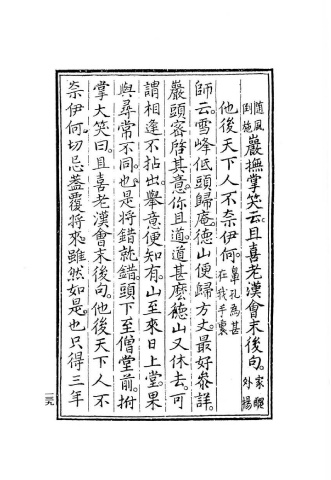 随風倒施巖撫掌笑云。且喜老漢會末後句。家醜外揚
他後天下人不柰伊何。鼻孔為甚在我手裏
師云。雪峰低頭歸庵。德山便歸方丈。最好參詳。
巖頭密啓其意。你且道道甚麼。德山又休去。可
謂相逢不拈出。舉意便知有。山至來日上堂。果
與尋常不同。也是將錯就錯。頭下至僧堂前。拊
掌大笑曰。且喜老漢會末後句。他後天下人不
柰伊何。切忌蓋覆將來。雖然如是。也只得三年